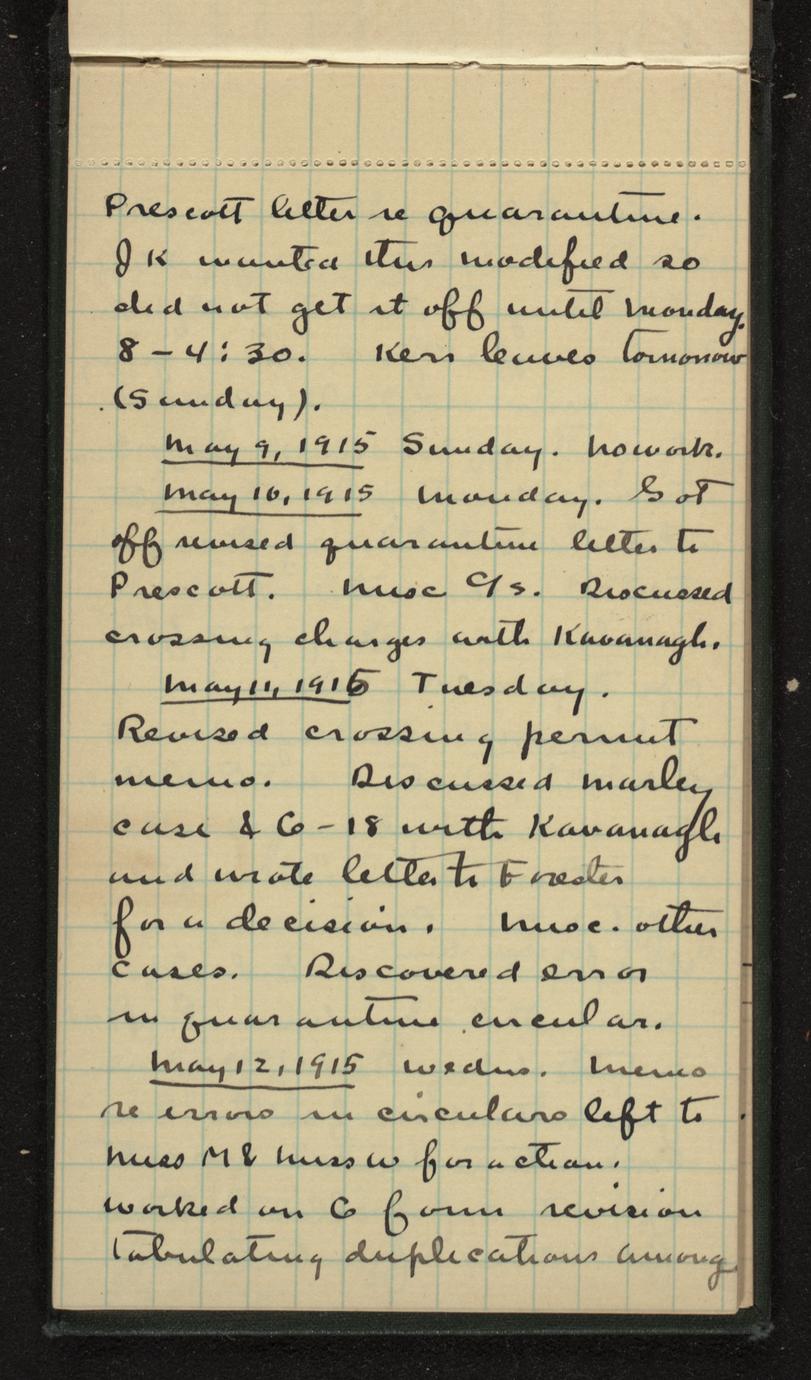 Prescott letter re quarantine.
JK wanted this modified so
did not get it off until Monday.
8 – 4:30. Kerr leaves tomorrow
(Sunday).
May 9, 1915 Sunday. No work.
May 10, 1915 Monday. Got
off revised quarantine letter to
Prescott. Misc G/s. Discussed
crossing charges with Kavanagh.
May 11, 1915 Tuesday.
Revised crossing permit
memo. Discussed Marley
case & G-18 with Kavanagh
and wrote letter to Forester
for a decision. Misc. other
cases. Discovered error
in quarantine circular.
May 12, 1915 Wednes. Memo
re errors in circulars left to
Miss M & Miss W for action.
Worked on G form revision
tabulating duplications among